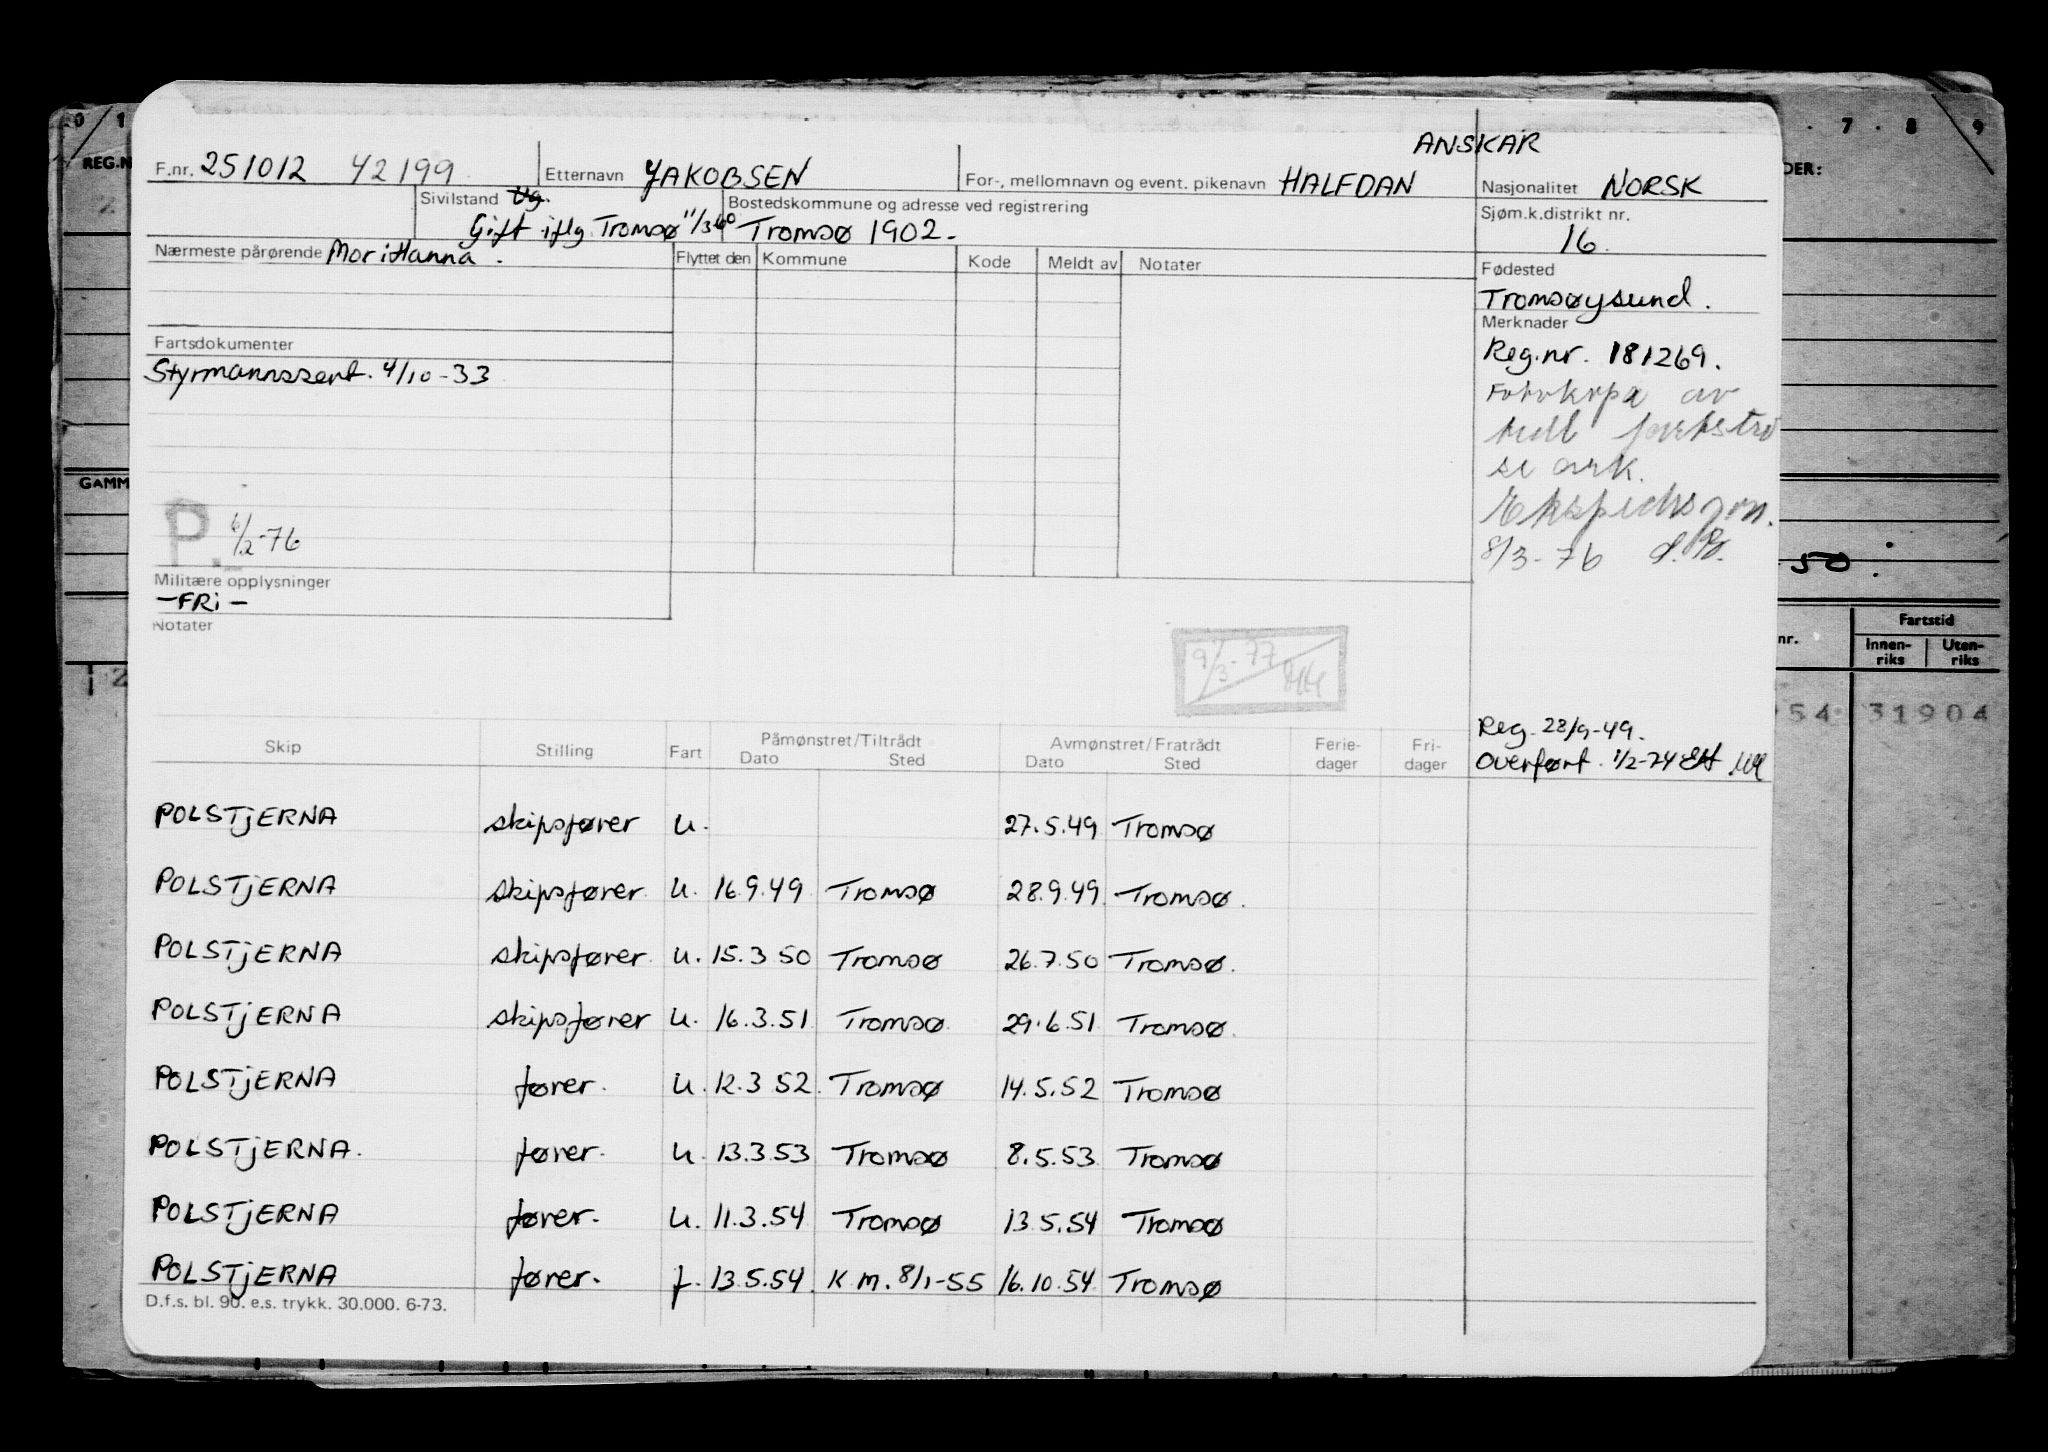 ANSKAR
F.nr. 251012 42199 Etternavn JAKOBSEN For-, mellomnavn og event. pikenavn HALFDAN Nasjonalitet NORSK
Sivilstand Ug. Bostedskommune og adresse ved registrering Sjøm.k.distrikt nr.
Gift iflg Tromsø 11/3-60 Tromsø 1902. 16.
Nærmeste pårørende Mor: Hanna. Flyttet den Kommune Kode Meldt av Notater Fødested
Tromsøysund.
Merknader
Fartsdokumenter Reg.nr. 181269.
Styrmannssert. 4/10-33
av
se ark.
P. 6/2-76
8/3-76
Militære opplysninger
-FRi-
Notater
9/3-77
Reg. 28/9-49.
Overført. 1/2-74
Skip Stilling Fart Påmønstret/Tiltrådt Avmønstret/Fratrådt Ferie- Fri-
Dato Sted Dato Sted dager dager
POLSTjERNA skipsfører u. 27.5.49 Tromsø
POLSTjERNA skipsfører u. 16.9.49 Tromsø 28.9.49 Tromsø.
POLSTjERNA skipsfører u. 15.3 50 Tromsø 26.7.50 Tromsø.
POLSTjERNA skipsfører u. 16.3.51 Tromsø 29.6.51 Tromsø.
POLSTjERNA fører. u. 12.3 52. Tromsø 14.5.52 Tromsø
POLSTjERNA. fører. u. 13.3.53 Tromsø 8.5.53 Tromsø
POLSTjERNA fører. u. 11.3.54 Tromsø 13.5.54 Tromsø
POLSTjERNA fører. f. 13.5.54. K m. 8/1-55 16.10.54 Tromsø
D.f.s. bl. 90. e.s. trykk. 30.000. 6-73.
0 1
REG.N
GAMM
12
7 . 8 9
DER:
50.
nr. Fartstid
Innen-riks Uten-riks
54 31904